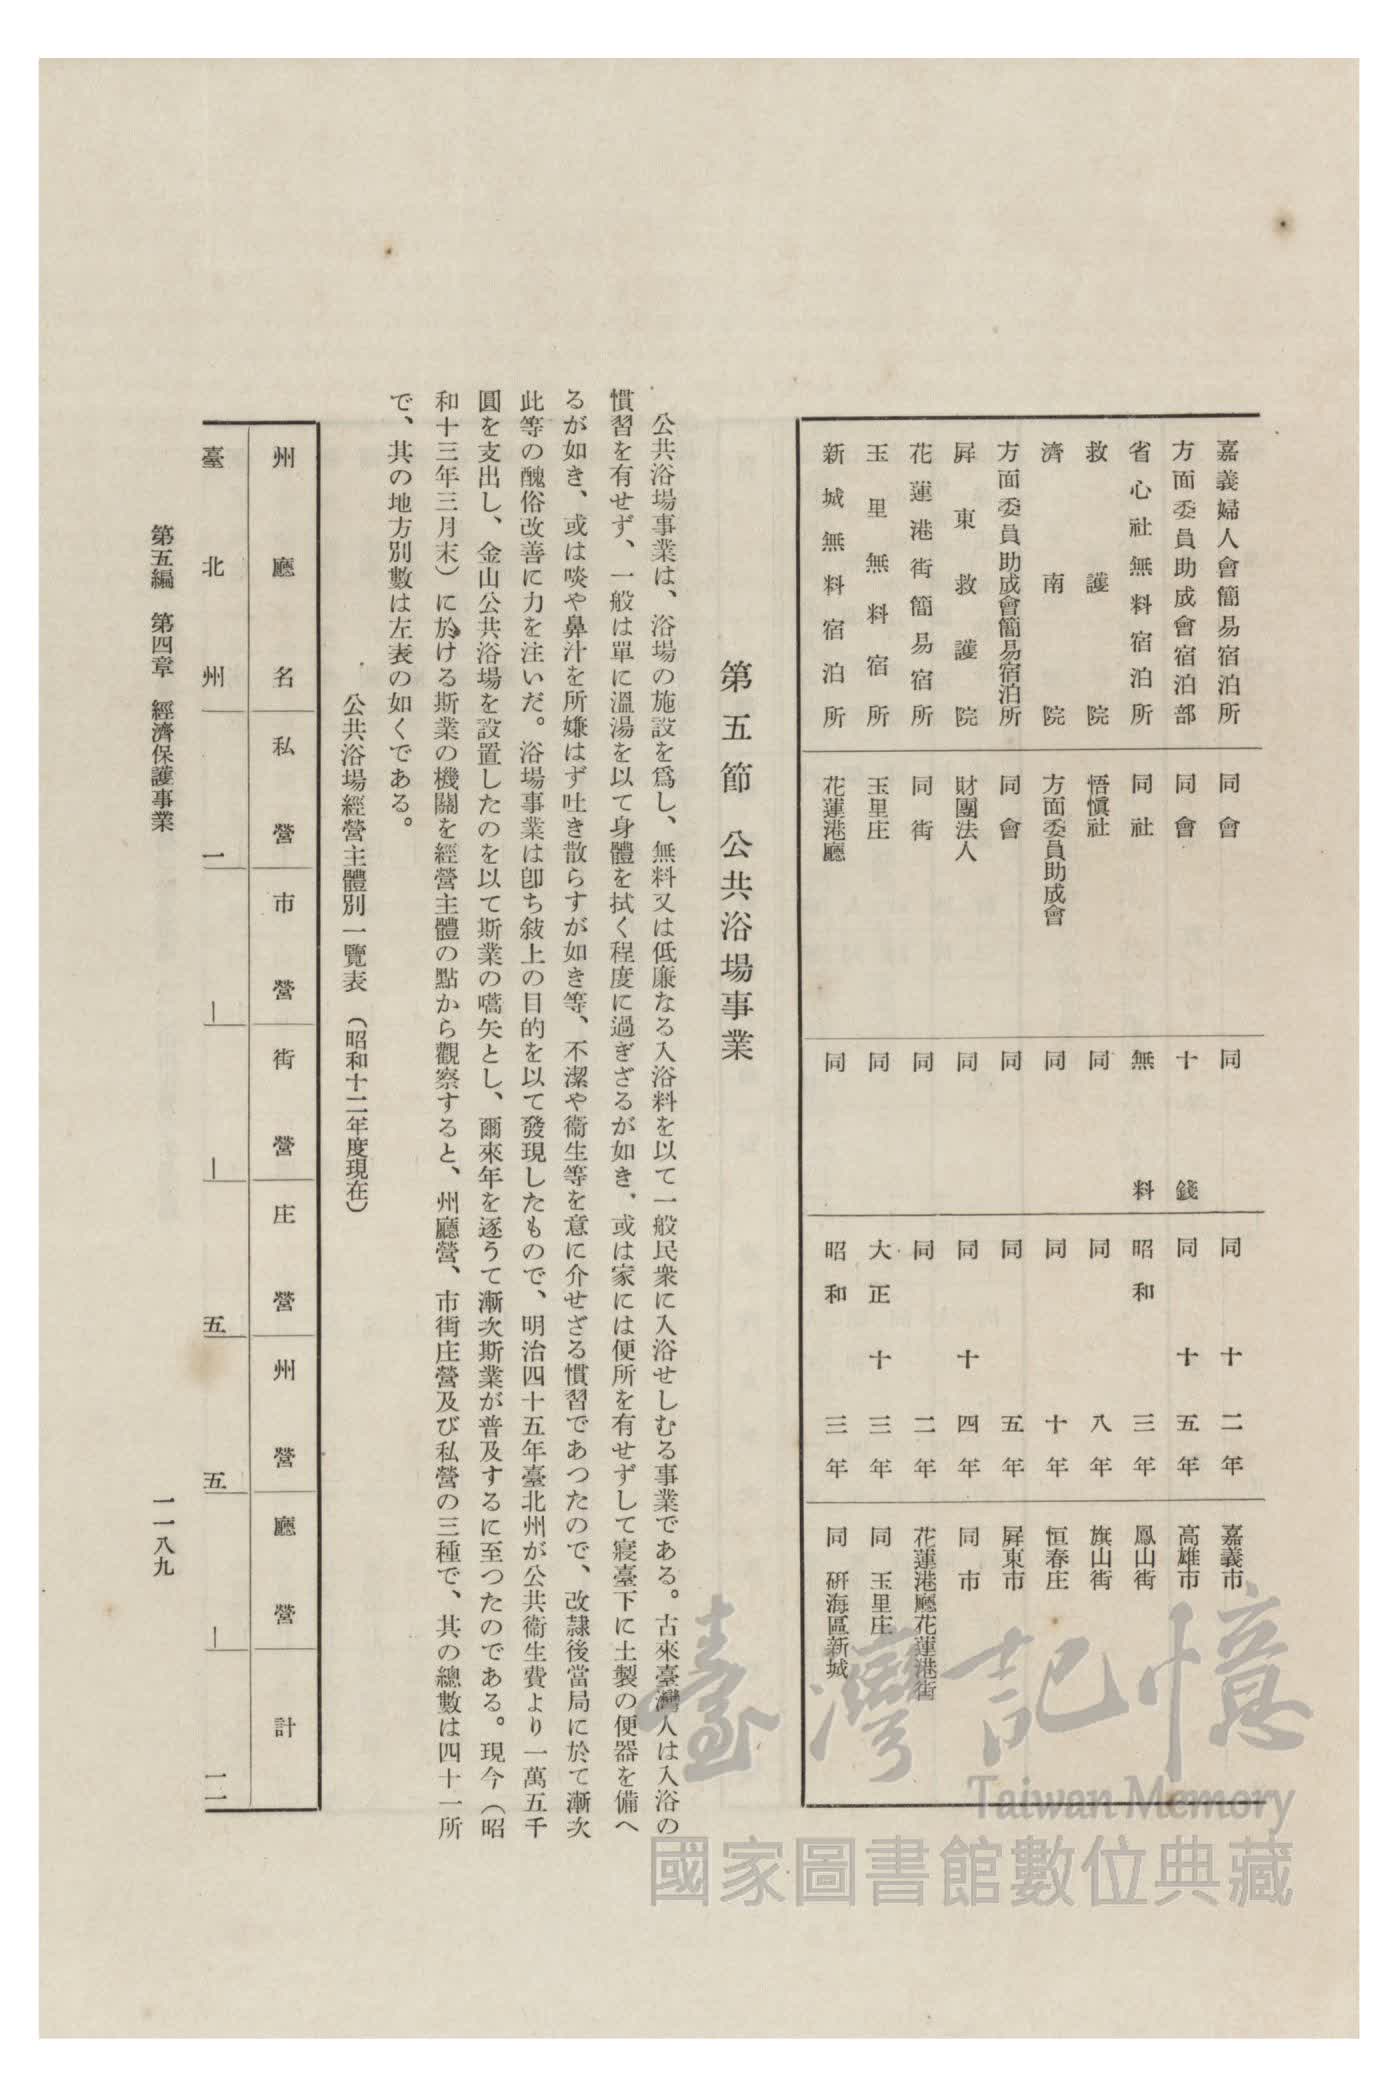 嘉義婦人會簡易宿泊所 同會 同 同十二年 嘉義市
方面委員助成會宿泊部 同會 十錢 同十五年 高雄市
省心社無料宿泊所 同社 無料 昭和三年 鳳山街
救護院 悟愼社 同 同八年 旗山街
濟南院 方面委員助成會 同 同十年 恒春庄
方面委員助成會簡易宿泊所 同會 同 同五年 屛東市
屛東救護院 財團法人 同 同十四年 同市
花蓮港街簡易宿所 同街 同 同二年 花蓮港廳花蓮港街
玉里無料宿所 玉里庄 同 大正十三年 同玉里庄
新城無料宿泊所 花蓮港廳 同 昭和三年 同硏海區新城
第五節 公共浴場事業
公共浴場事業は、浴場の施設を爲し、無料又は低廉なる入浴料を以て一般民衆に入浴せしむる事業である。古來臺灣人は入浴の
慣習を有せず、一般は單に溫湯を以て身體を拭く程度に過ぎざるが如き、或は家には便所を有せずして寢臺下に土製の便器を備へ
るが如き、或は啖や鼻汁を所嫌はず吐き散らすが如き等、不潔や衞生等を意に介せざる慣習であつたので、改隷後當局に於て漸次
此等の醜俗改善に力を注いだ。浴場事業は卽ち敍上の目的を以て發現したもので、明治四十五年臺北州が公共衞生費より一萬五千
圓を支出し、金山公共浴場を設置したのを以て斯業の嚆矢とし、爾來年を逐うて漸次斯業が普及するに至つたのである。現今（昭
和十三年三月末）に於ける斯業の機關を經營主體の點から觀察すると、州廳營、市街庄營及び私營の三種で、其の總數は四十一所
で、其の地方別數は左表の如くである。
公共浴場經營主體別一覽表（昭和十二年度現在）
州廳名 私營 市營 街營 庄營 州營 廳營 計
臺北州 一 － － 五 五 － 一一
第五編 第四章 經濟保護事業 一一八九
臺灣記憶
Taiwan Memory
國家圖書館數位典藏